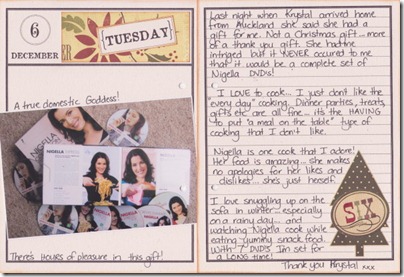 6
DECEMBER
TUESDAY
A true domestic Goddess!
NIGELLA
NIGELLA
There's hours of pleasure in this gift!
Last night when Krystal arrived home
from Auckland she said she had a
gift for me. Not a Christmas gift... more
of a thank you gift. She had me
intriged but it NEVER occured to me
that it would be a complete set of
Nigella DVD's!
I LOVE to cook... I just don't like the
"every day" cooking. Dinner parties, treats,
gifts etc are all fine... it's the HAVING
to put "a meal on the table" type of
cooking that I don't like.
Nigella is one cook that I adore!
Her food is amazing... she makes
no apologies for her likes and
dislikes... she's just herself.
I love snuggling up on the
sofa in winter... especially
on a rainy day... and
watching Nigella cook while
eating yummy snack food.
With 7 DVD's I'm set for
a LONG time!
Thank you Krystal xxx
SIX